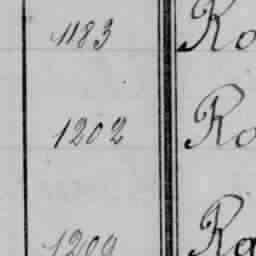 1183 Ro
1202 Ro
1209 Ra